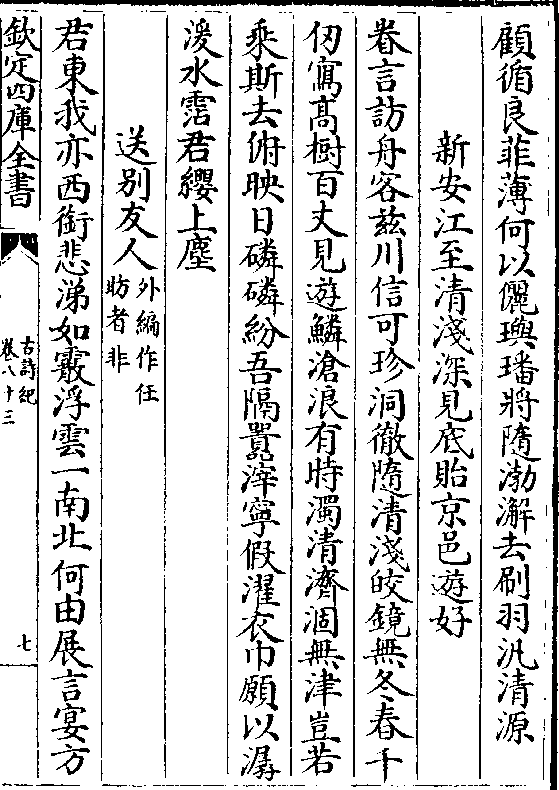 顧循良菲薄何以儷璵璠將隨渤澥去刷羽汎清源
新安江至清淺深見底貽京邑遊好
眷言訪舟客兹川信可珍洞徹隨清淺皎鏡無冬春千
仞寫髙樹百丈見遊鱗滄浪有時濁清濟涸無津豈若
乗斯去俯映日磷磷紛吾隔囂滓寧假濯衣巾願以潺
湲水霑君纓上塵
送别友人外編作任昉者非
君東我亦西銜悲涕如霰浮雲一南北何由展言宴方
欽定四庫全書
古詩紀
卷八十三
七